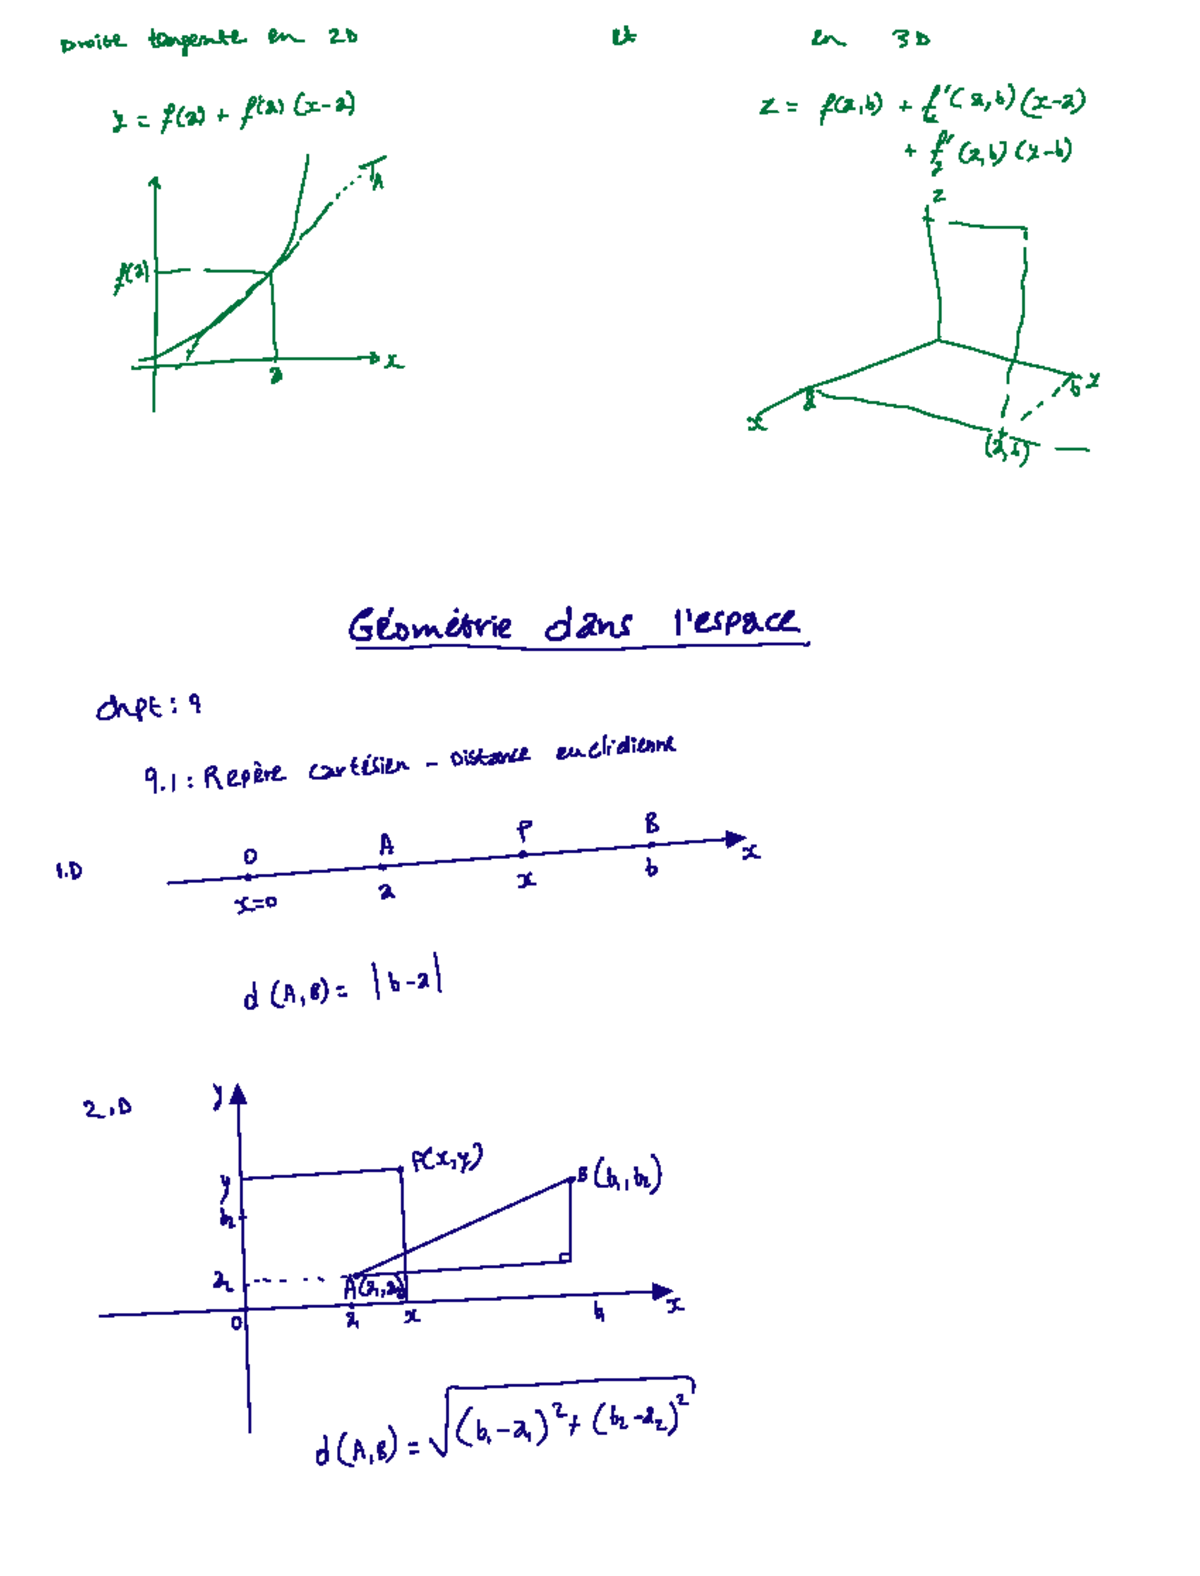 Droite tangente en 2D et en 3D
y = f(a) + f'(a) (x-a)
z = f(a,b) + f'x (a,b) (x-a)
+ f'y (a,b) (y-b)
TA
f(a)
a
x
z
x
a
b
y
(a,b)
Géométrie dans l'espace
chpt : 9
9.1 : Repère cartésien - Distance euclidienne
1.D
O A P B
x=0 a x b x
d (A,B) = |b-a|
2.D
y
P(x,y)
B (b1, b2)
y
b2
a2
A(a1,a2)
0 a1 x b1 x
d(A,B) = √(b1-a1)² + (b2-a2)²